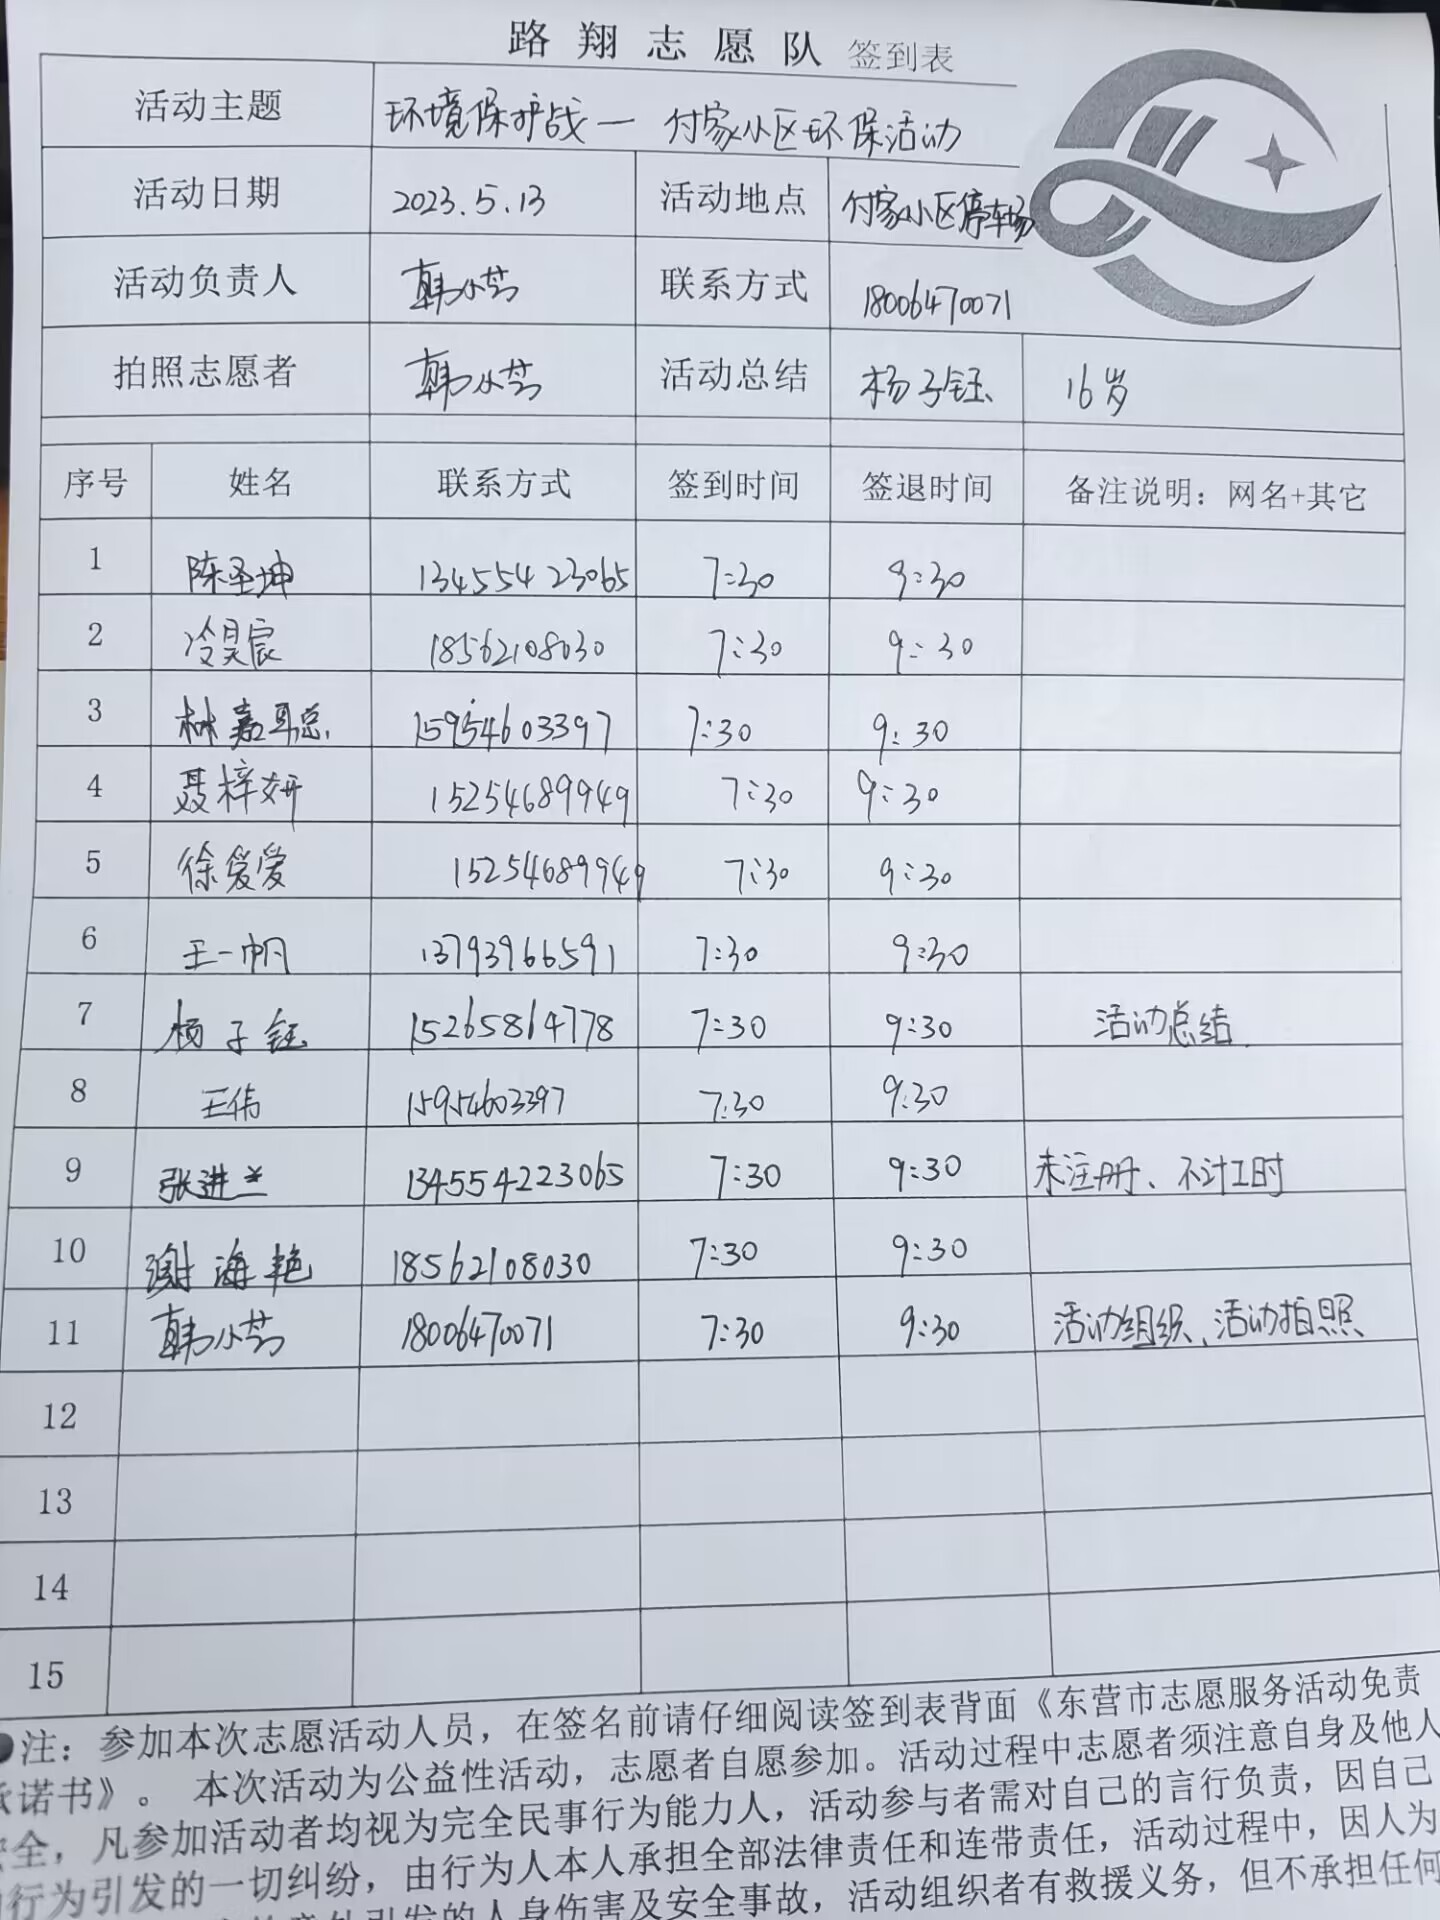 路翔志愿队 签到表
活动主题 环境保护战一 付家小区环保活动
活动日期 2023.5.13 活动地点 付家小区停车场
活动负责人 韩小芳 联系方式 18006470071
拍照志愿者 韩小芳 活动总结 杨子钰 16岁
序号 姓名 联系方式 签到时间 签退时间 备注说明：网名+其它
1 陈圣坤 13455423065 7:30 9:30
2 冷昊宸 18562108030 7:30 9:30
3 林嘉聪 15954603397 7:30 9:30
4 聂梓妍 15254689949 7:30 9:30
5 徐爱爱 15254689949 7:30 9:30
6 王一帆 13793966591 7:30 9:30
7 杨子钰 15265864778 7:30 9:30 活动总结
8 王伟 15954603397 7:30 9:30
9 张进兰 134554223065 7:30 9:30 未注册、不计工时
10 谢海艳 18562108030 7:30 9:30
11 韩小芳 18006470071 7:30 9:30 活动组织、活动拍照
12
13
14
15
●注：参加本次志愿活动人员，在签名前请仔细阅读签到表背面《东营市志愿服务活动免责
承诺书》。 本次活动为公益性活动，志愿者自愿参加。活动过程中志愿者须注意自身及他人
安全，凡参加活动者均视为完全民事行为能力人，活动参与者需对自己的言行负责，因自己
的行为引发的一切纠纷，由行为人本人承担全部法律责任和连带责任，活动过程中，因人为
意外引发的人身伤害及安全事故，活动组织者有救援义务，但不承担任何